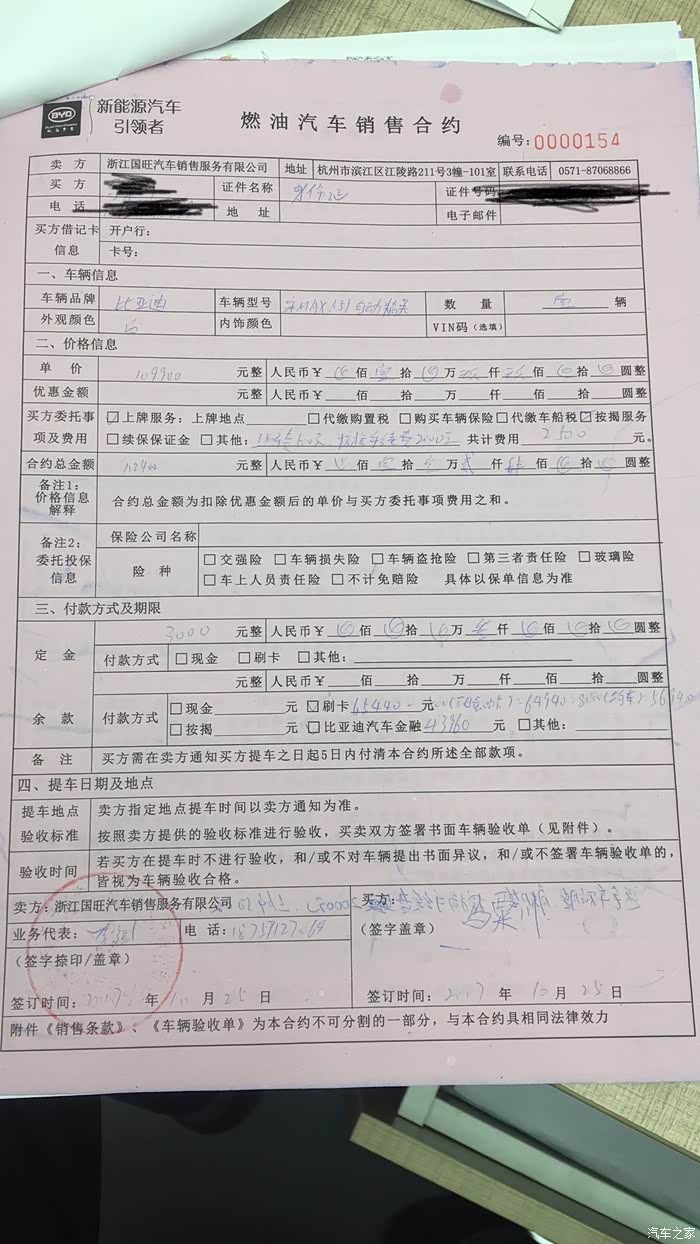 BYD 新能源汽车
引领者
燃油汽车销售合约
编号:0000154
卖方 浙江国旺汽车销售服务有限公司 地址 杭州市滨江区江陵路211号3幢-101室 联系电话 0571-87068866
买方 证件名称 身份证 证件号码
电话 地址 电子邮件
买方借记卡信息 开户行:
卡号:
一、车辆信息
车辆品牌 比亚迪 车辆型号 宋MAX 数量 壹 辆
外观颜色 白 内饰颜色 VIN码(选填)
二、价格信息
单价 109900 元整 人民币¥ 佰 壹 拾 万 仟 佰 拾 圆整
优惠金额 元整 人民币¥ 佰 拾 万 仟 佰 拾 圆整
买方委托事 ☑上牌服务:上牌地点 □代缴购置税 □购买车辆保险 □代缴车船税 ☑按揭服务
项及费用 □续保保证金 □其他: 共计费用 2500 元。
合约总金额 112400 元整 人民币¥ 佰 拾 万 贰 仟 佰 拾 圆整
备注1:
价格信息
解释 合约总金额为扣除优惠金额后的单价与买方委托事项费用之和。
备注2:
委托投保
信息 保险公司名称
险种 □交强险 □车辆损失险 □车辆盗抢险 □第三者责任险 □玻璃险
□车上人员责任险 □不计免赔险 具体以保单信息为准
三、付款方式及期限
定金 3000 元整 人民币¥ 佰 拾 万 叁 仟 佰 拾 圆整
付款方式 □现金 □刷卡 □其他:
余款 元整 人民币¥ 佰 拾 万 仟 佰 拾 圆整
付款方式 □现金 元 □刷卡 65440 元
□按揭 元 □比亚迪汽车金融 43960 元 □其他:
备注 买方需在卖方通知买方提车之日起5日内付清本合约所述全部款项。
四、提车日期及地点
提车地点 卖方指定地点提车时间以卖方通知为准。
验收标准 按照卖方提供的验收标准进行验收，买卖双方签署书面车辆验收单（见附件）。
验收时间 若买方在提车时不进行验收，和/或不对车辆提出书面异议，和/或不签署车辆验收单的，
皆视为车辆验收合格。
卖方:浙江国旺汽车销售服务有限公司 买方:
业务代表: 电话:18757127064 (签字盖章)
(签字捺印/盖章)
签订时间: 2017 年 10 月 25 日 签订时间: 2017 年 10 月 25 日
附件《销售条款》、《车辆验收单》为本合约不可分割的一部分，与本合约具相同法律效力
汽车之家